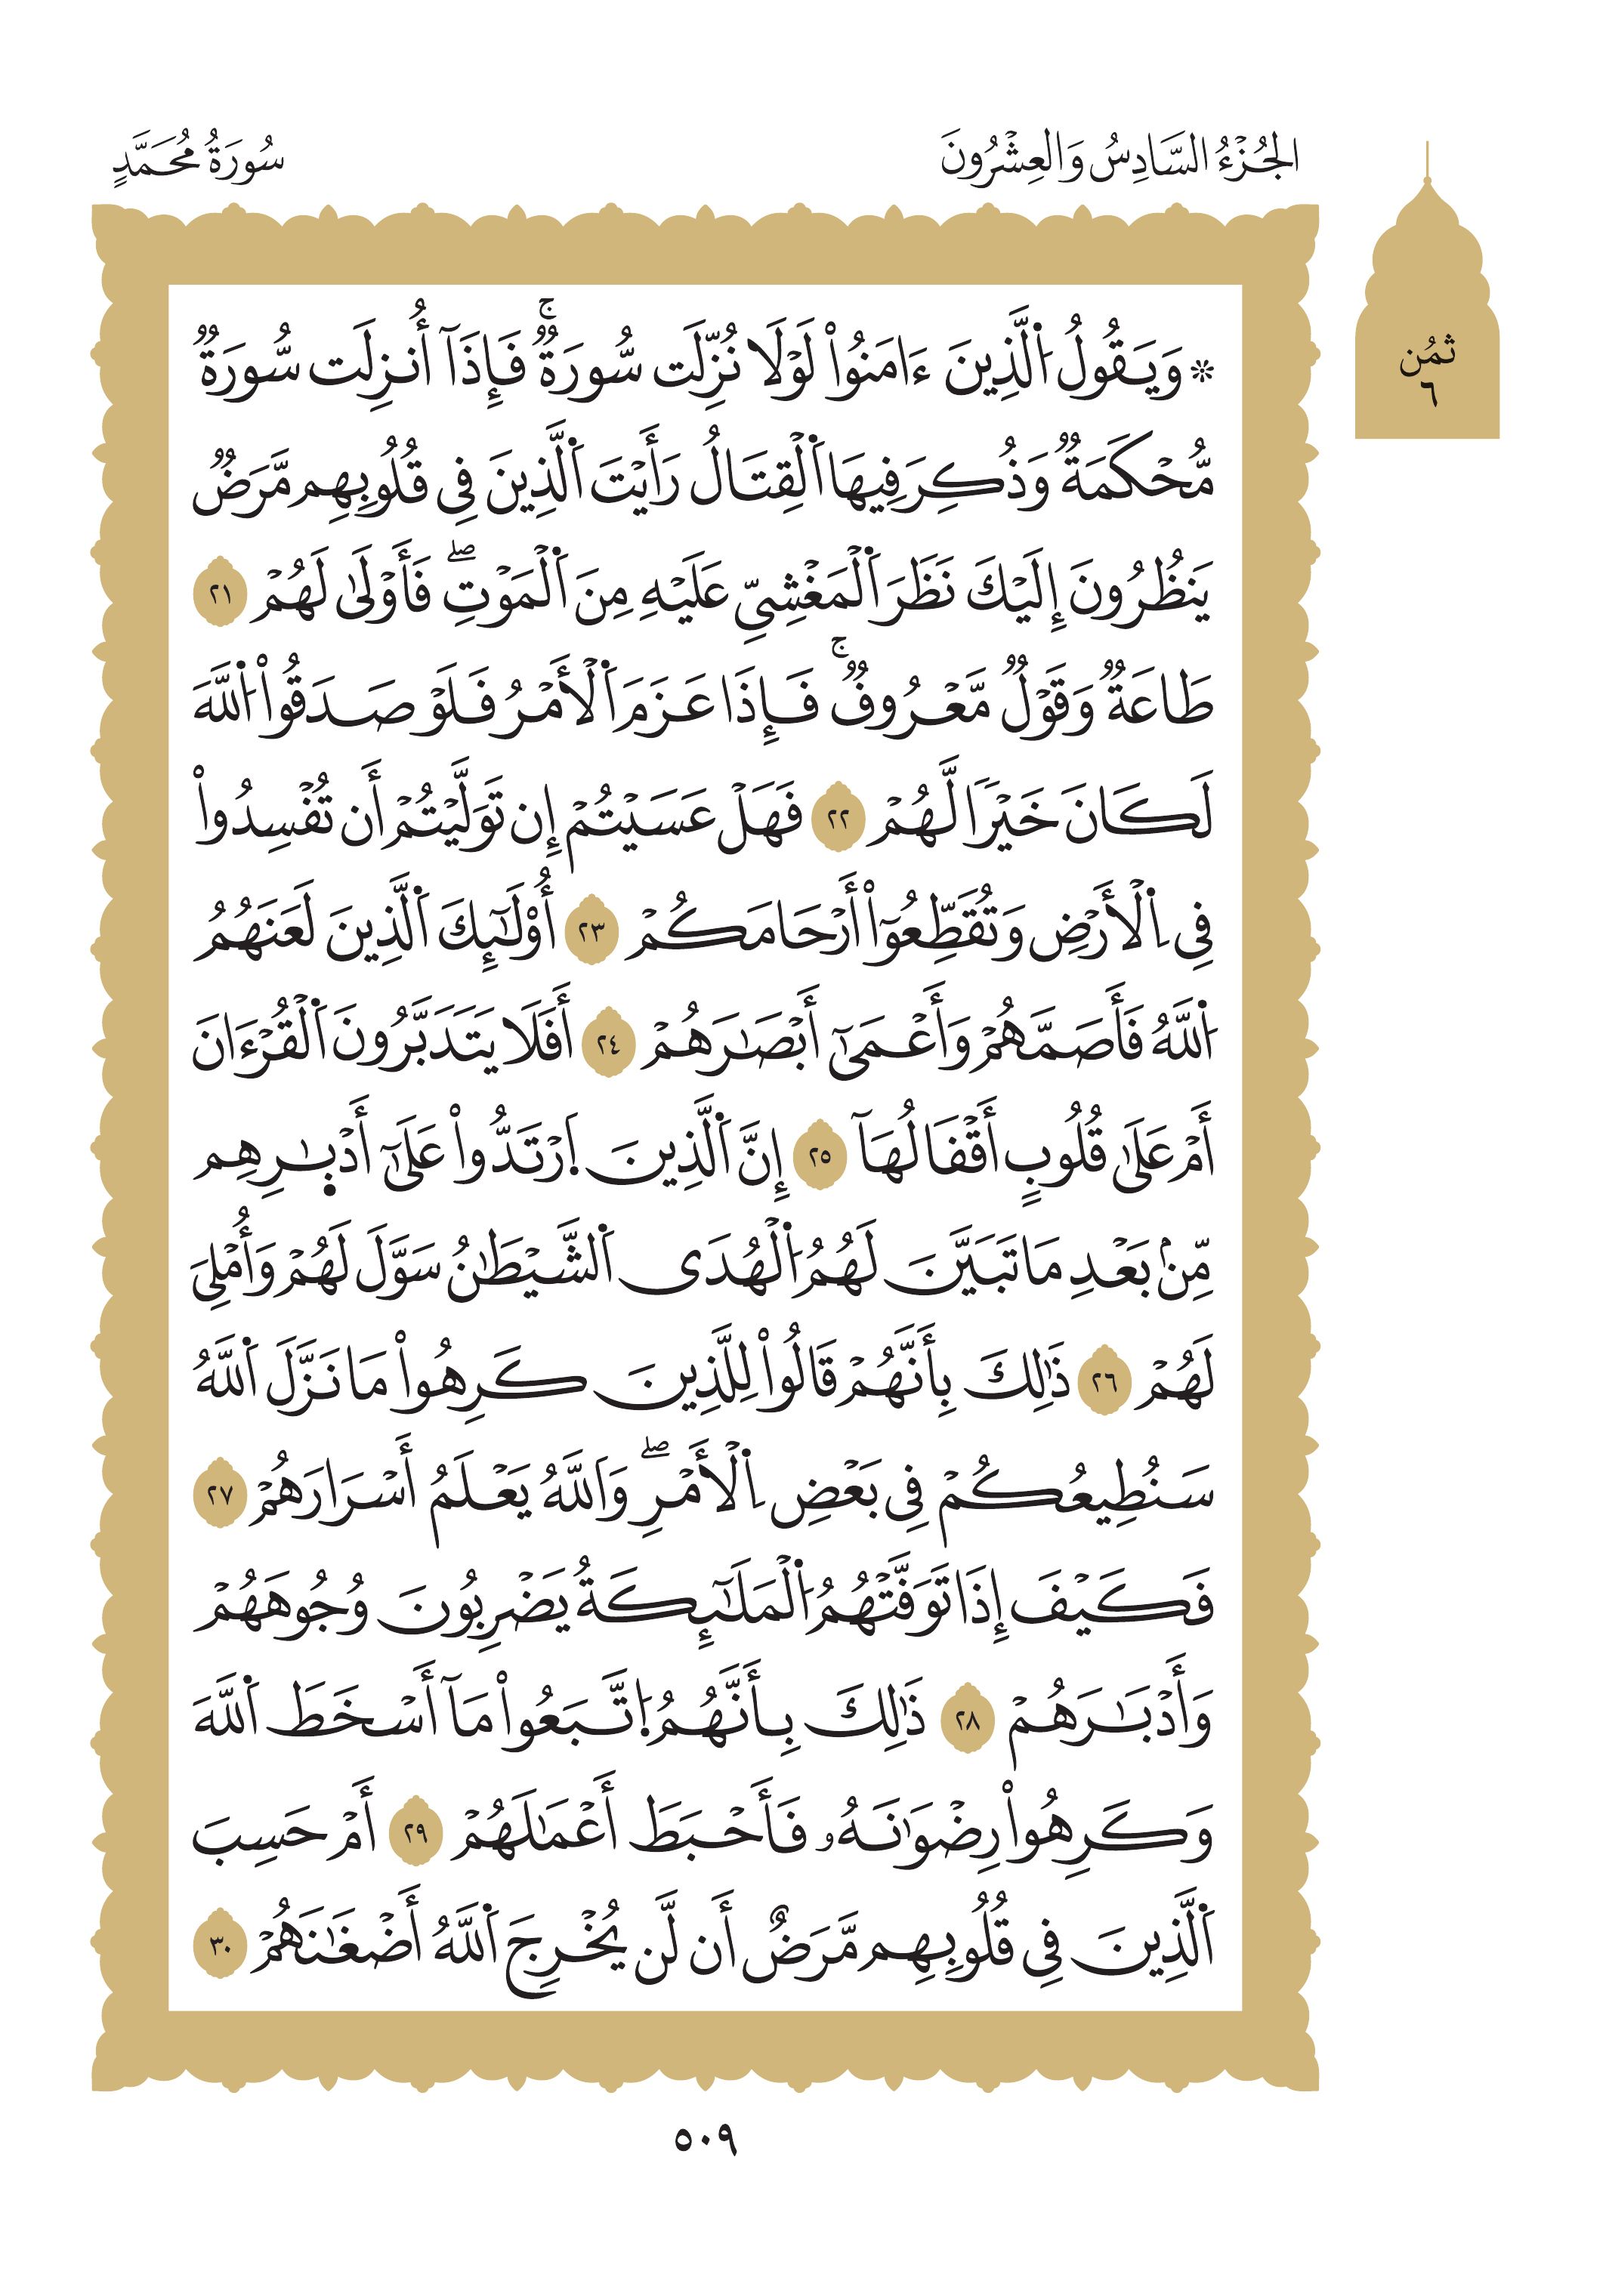 الجُزْءُ السَّادِسُ وَالعِشْرُونَ
سُورَةُ مُحَمَّدٍ
ثُمُن
٦
۞ وَيَقُولُ اَ۬لَّذِينَ ءَامَنُواْ لَوْلَا نُزِّلَت سُّورَةٞۖ فَإِذَآ أُنزِلَت سُّورَةٞ
مُّحْكَمَةٞ وَذُكِرَ فِيهَا اَ۬لْقِتَالُ رَأَيْتَ اَ۬لَّذِينَ فِي قُلُوبِهِم مَّرَضٞ
يَنظُرُونَ إِلَيْكَ نَظَرَ اَ۬لْمَغْشِيِّ عَلَيْهِ مِنَ اَ۬لْمَوْتِۖ فَأَوْلَىٰ لَهُمْ ٢١
طَاعَةٞ وَقَوْلٞ مَّعْرُوفٞۚ فَإِذَا عَزَمَ اَ۬لْأَمْرُ فَلَوْ صَدَقُواْ اُ۬للَّهَ
لَكَانَ خَيْرٗا لَّهُمْ ٢٢ فَهَلْ عَسَيْتُمْ إِن تَوَلَّيْتُمْ أَن تُفْسِدُواْ
فِي اِ۬لْأَرْضِ وَتُقَطِّعُوٓاْ أَرْحَامَكُمْ ٢٣ أُوْلَٰٓئِكَ اَ۬لَّذِينَ لَعَنَهُمُ
اُ۬للَّهُ فَأَصَمَّهُمْ وَأَعْمَىٰٓ أَبْصَٰرَهُمْ ٢٤ أَفَلَا يَتَدَبَّرُونَ اَ۬لْقُرْءَانَ
أَمْ عَلَىٰ قُلُوبٍ أَقْفَالُهَآ ٢٥ إِنَّ اَ۬لَّذِينَ اَ۪رْتَدُّواْ عَلَىٰٓ أَدْبٰ۪رِهِم
مِّنۢ بَعْدِ مَا تَبَيَّنَ لَهُمُ اُ۬لْهُدَى اَ۬لشَّيْطَٰنُ سَوَّلَ لَهُمْ وَأُمْلِيَ
لَهُمْ ٢٦ ذَٰلِكَ بِأَنَّهُمْ قَالُواْ لِلَّذِينَ كَرِهُواْ مَا نَزَّلَ اَ۬للَّهُ
سَنُطِيعُكُمْ فِي بَعْضِ اِ۬لْأَمْرِۖ وَاَللَّهُ يَعْلَمُ أَسْرَارَهُمْ ٢٧
فَكَيْفَ إِذَا تَوَفَّتْهُمُ اُ۬لْمَلَٰٓئِكَةُ يَضْرِبُونَ وُجُوهَهُمْ
وَأَدْبَٰرَهُمْ ٢٨ ذَٰلِكَ بِأَنَّهُمُ اُ۪تَّبَعُواْ مَآ أَسْخَطَ اَ۬للَّهَ
وَكَرِهُواْ رِضْوَٰنَهُۥ فَأَحْبَطَ أَعْمَٰلَهُمْ ٢٩ أَمْ حَسِبَ
اَ۬لَّذِينَ فِي قُلُوبِهِم مَّرَضٌ أَن لَّن يُخْرِجَ اَ۬للَّهُ أَضْغَٰنَهُمْ ٣٠
٥٠٩